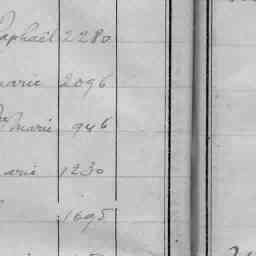 Raphaël 2280
marie 2096
marie 946
marie 1230
1695